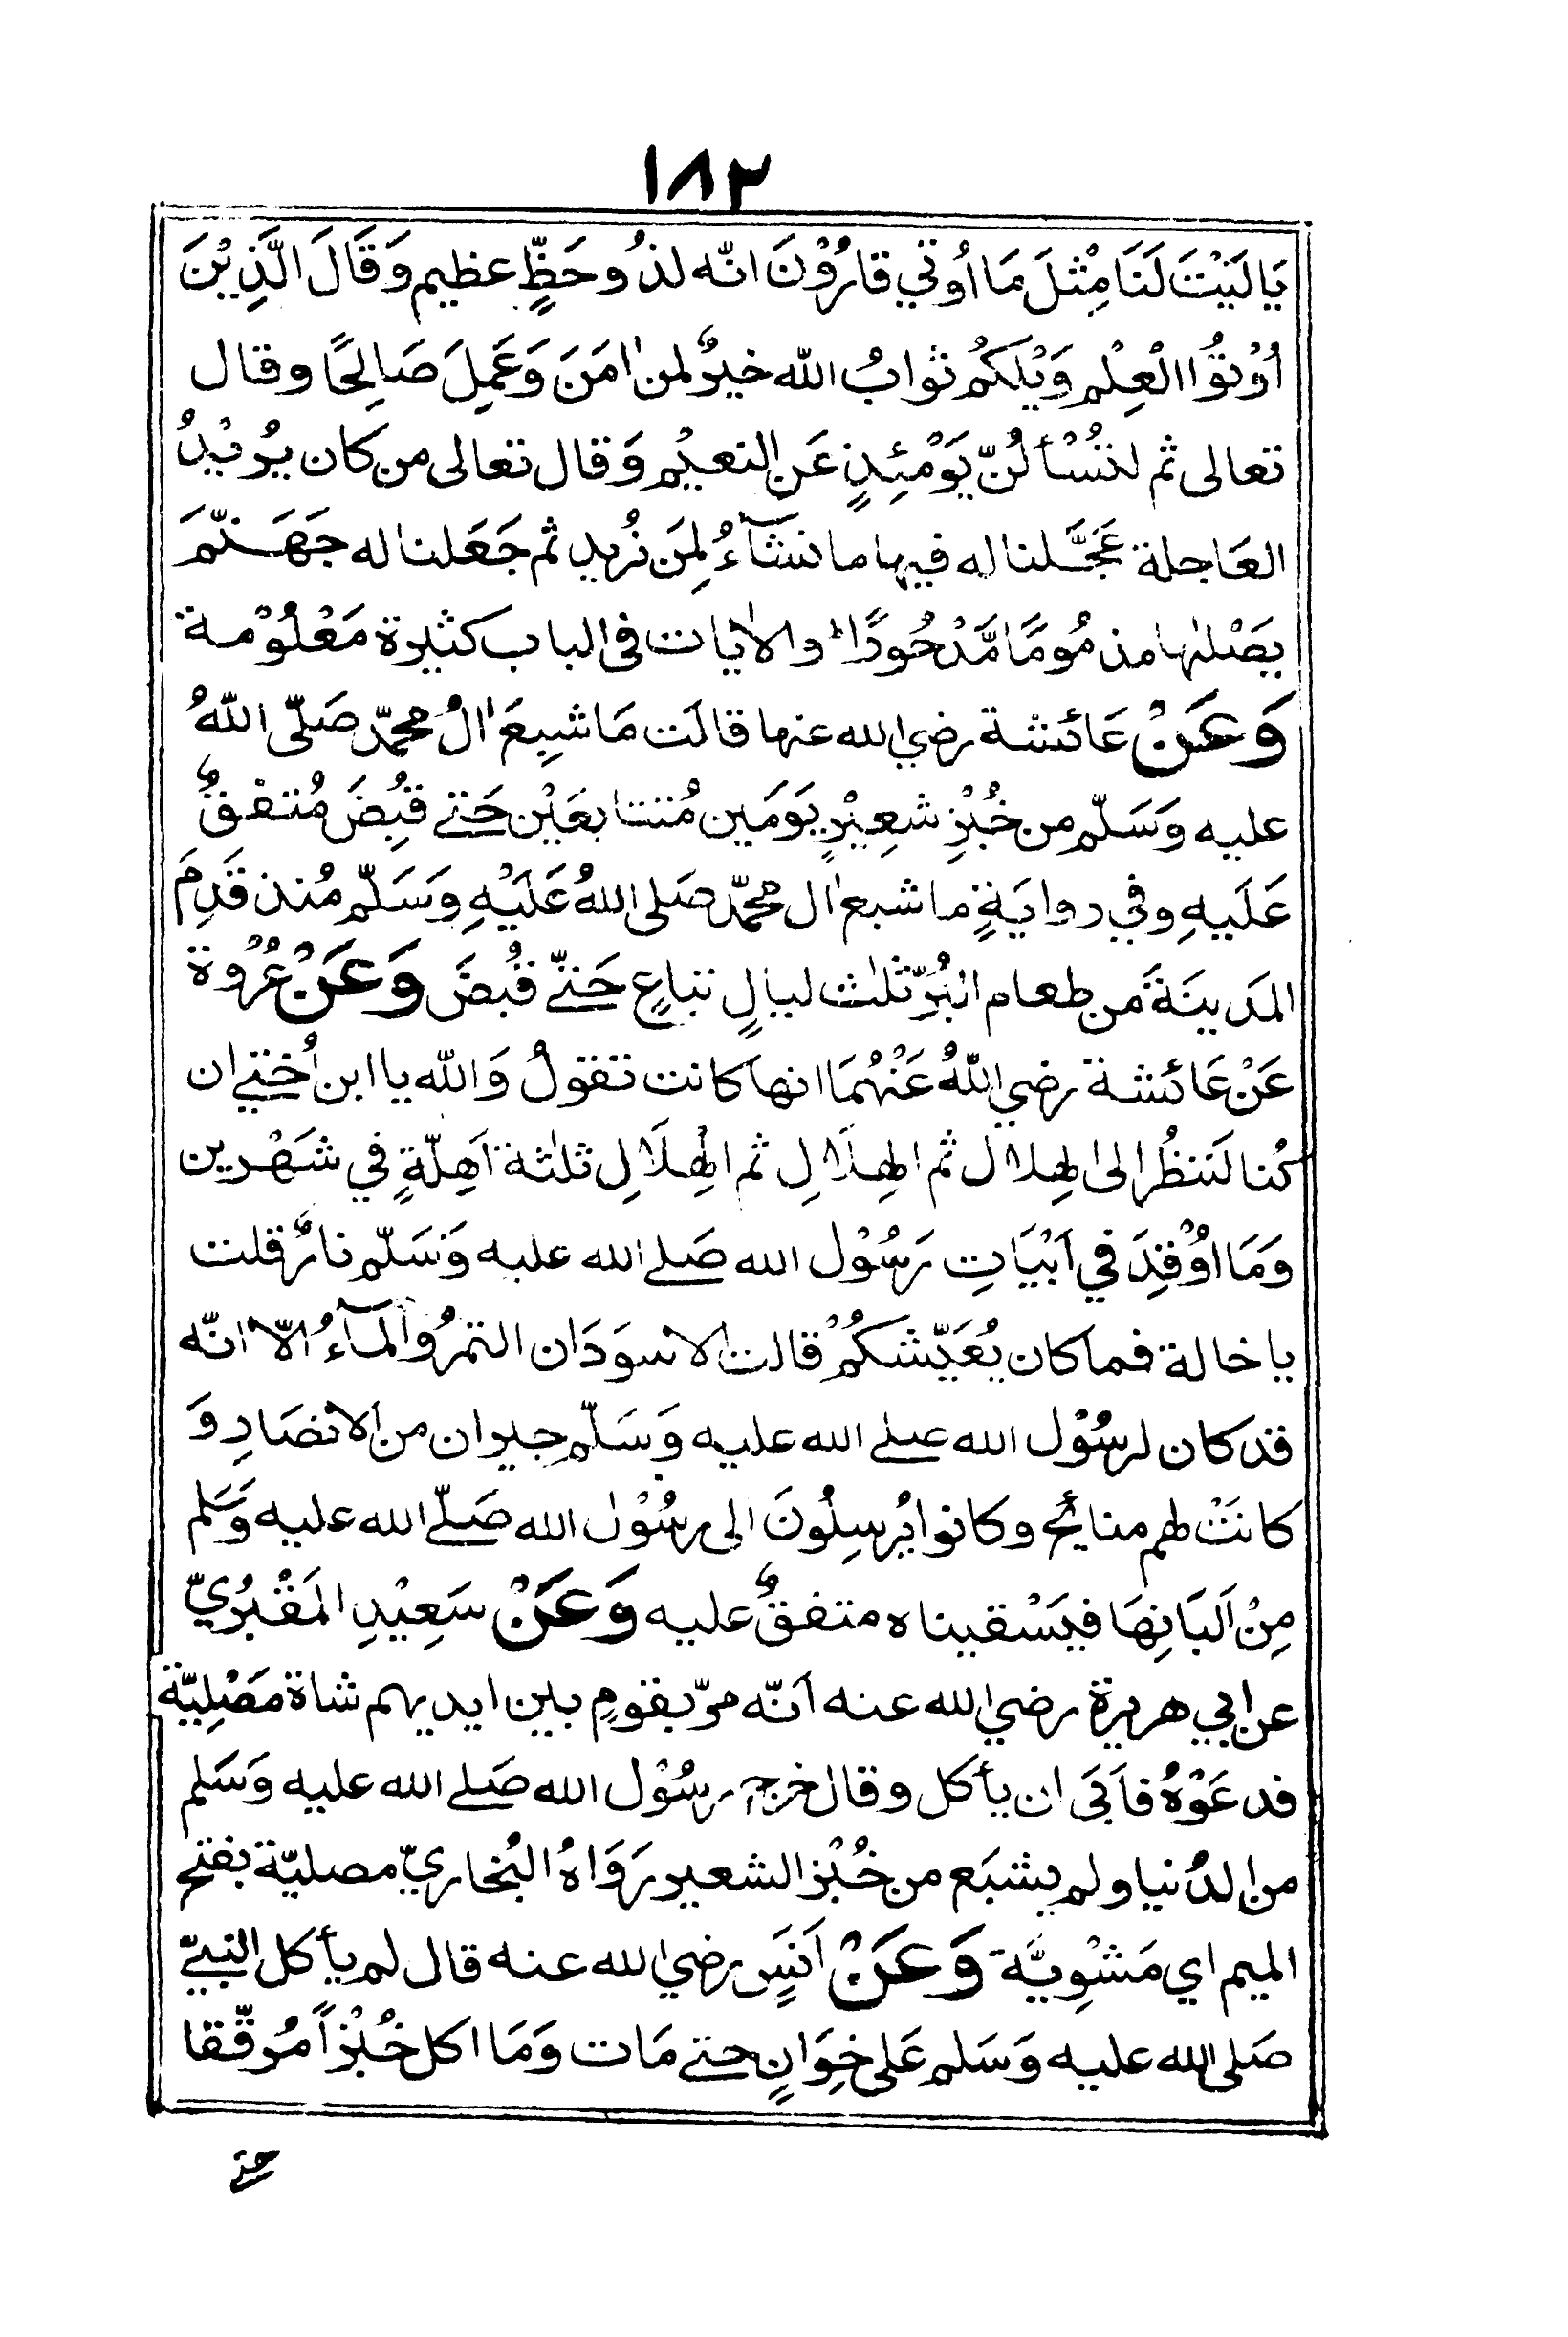 ١٨٢
يَا لَيْتَ لَنَا مِثْلَ مَا أُوتِي قارُوْنَ انّه لذُو حَظٍّ عظيم وَقَالَ الَّذِيْنَ
اُوْتوُا الْعِلْم وَيْلَكُمْ ثَوابُ الله خيرٌ لمن اٰمَنَ وَعَمِلَ صَالِحًا وقال
تعالى ثم لتُسْأَلُنّ يَوْمَئِذٍ عَنِ النعيْم وَقال تعالى من كان يُرِيْدُ
العَاجلة عَجَّلنا له فيها ما نشَآءُ لِمَن نُريد ثم جَعَلنا له جَهَنّمَ
يَصْلٰها مذمُومًا مَّدْحُورًا والاٰيات فى الباب كثيرة مَعْلُوْمة
وَعَنْ عَائشة رضي الله عنها قالَت مَا شبِعَ اٰلُ محمّد صَلّى اللهُ
عليه وَسَلّم من خُبْزِ شعِيْرٍ يَوْمَين مُتتابعَيْن حَتى قُبِضَ مُتفقٌ
عَلَيهِ وفي روايَةٍ ما شبع اٰل محمّد صَلى اللهُ عَلَيْهِ وَسَلّم مُنذ قَدِمَ
المَدينَةَ من طعام البُرّ ثلٰث ليالٍ تباعٍ حَتّى قُبضَ وَعَنْ عُرْوة
عَنْ عَائشة رضي اللهُ عَنْهُمَا انها كانت تقولُ وَالله يا ابن اُختي ان
كُنا لَننظُر الى الهِلال ثم الهِلَالِ ثم الهِلَالِ ثلٰثة اَهِلّةٍ في شَهْرين
وَمَا اُوْقِدَ في اَبْيَاتِ رَسُوْل الله صَلى الله عليه وَسَلّم نارٌ قلت
يا خالة فما كان يُعَيّشكُمْ قالت الاسوَدَان التمرُ والمآءُ الاّ انّه
قد كان لرسُوْل الله صلى الله عليه وَسَلّم جيران من الانصَارِ وَ
كانَتْ لهم منائحُ وكانوا يُرسِلُونَ الى رسُوْل الله صَلّى الله عليه وَسَلم
مِنْ اَلبَانِهَا فيَسْقيناه متفقٌ عليه وَعَنْ سَعِيْدِ المَقْبُرِيّ
عن ابي هريرة رضي الله عنه اَنّه مرّ بقومٍ بين ايديهم شاة مَصْلِيّة
فدعَوْهُ فاَبَى ان يأكل وقال خرج رسُوْل الله صَلى الله عليه وَسَلم
من الدُنيا ولم يشبَع من خُبْز الشعير رَوَاهُ البُخاريّ مصليّة بفتح
الميم اي مَشْوِيَّة وَعَنْ اَنَسٍ رضي الله عنه قال لم يأكل النبيّ
صَلى الله عليه وَسَلم عَلى خِوَانٍ حتى مَات وَمَا اكل خُبْزاً مُرقّقا
حتى